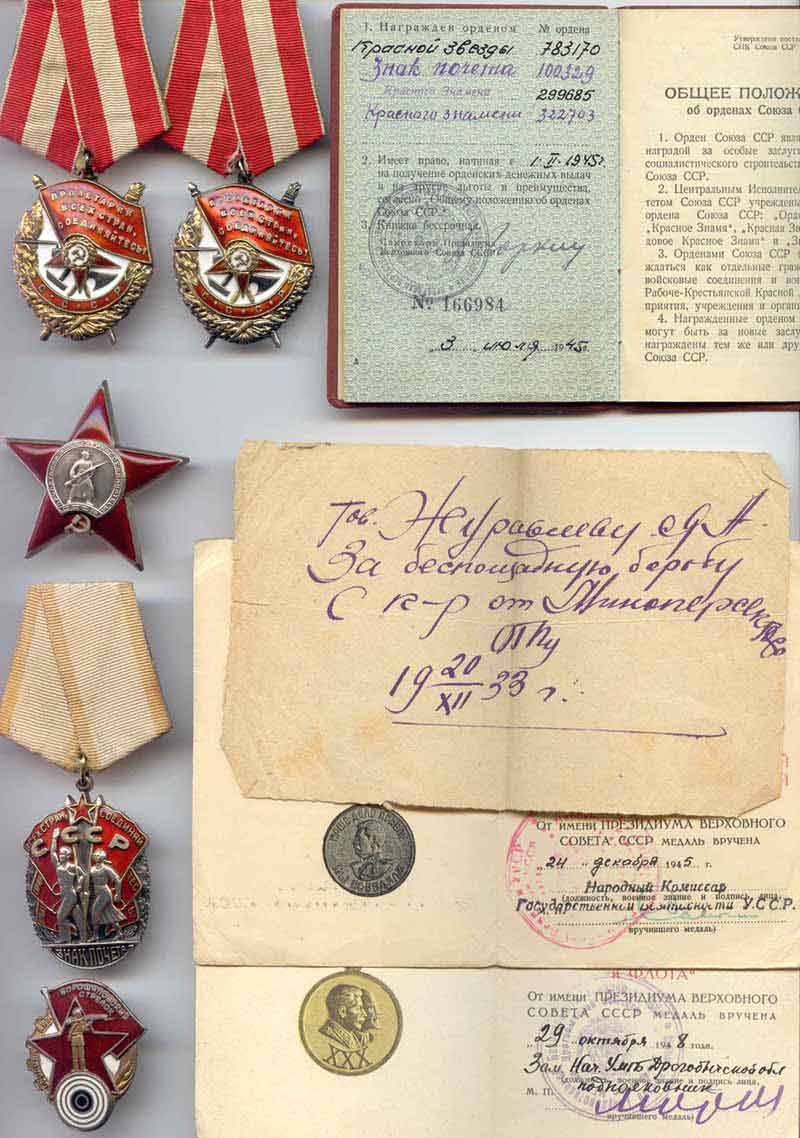 ПРОЛЕТАРИИ
ВСЕХ СТРАН,
СОЕДИНЯЙТЕСЬ!
С С С Р
ВСЕХ СТРАН,
СОЕДИНЯЙТЕСЬ!
С С С Р
1. Награжден орденом № ордена
Красной звезды 783170
Знак почета 100329
Красного Знамени 299685
Красного знамени 322703
2. Имеет право, начиная с 1·II-1945г.
на получение орденских денежных выдач
и на другие льготы и преимущества,
согласно „Общему положению об орденах
Союза ССР".
3. Книжка бессрочная.
Секретарь Президиума
Верховного Совета СССР
№ 166984
„3" июля 1945г.
Утверждено
СНК Союза ССР
ОБЩЕЕ ПОЛОЖ
об орденах Союза
1. Орден Союза ССР явл
наградой за особые заслуг
социалистического строительст
Союза ССР.
2. Центральным Исполните
тетом Союза ССР учреждены
ордена Союза ССР: „Орд
„Красное Знамя", „Красная Зв
довое Красное Знамя" и „З
3. Орденами Союза ССР
ждаться как отдельные граж
войсковые соединения и
Рабоче-Крестьянской Красной
приятия, учреждения и орган
4. Награжденные орденом
могут быть за новые заслу
награждены тем же или дру
Союза ССР.
Тов. Журавлеву
За беспощадную борьбу
С к-р от
ОГПУ
19 20/XII 33 г.
СССР
ЗНАК ПОЧЕТА
ВОРОШИЛОВСКИЙ
СТРЕЛОК
НАШЕ ДЕЛО ПРАВОЕ
МЫ ПОБЕДИЛИ
От имени ПРЕЗИДИУМА ВЕРХОВНОГО
СОВЕТА СССР МЕДАЛЬ ВРУЧЕНА
„24" декабря 1945 г.
Народный Комиссар
(должность, военное звание и подпись лица,
Государственной безопасности У.С.С.Р.
вручившего медаль)
XXX
И ФЛОТА"
От имени ПРЕЗИДИУМА ВЕРХОВНОГО
СОВЕТА СССР МЕДАЛЬ ВРУЧЕНА
„29" октября 1948 года.
Зам. Нач. УМГБ Дрогобычской обл
(должность, военное звание и подпись лица,
М. П. подполковник
вручившего медаль)